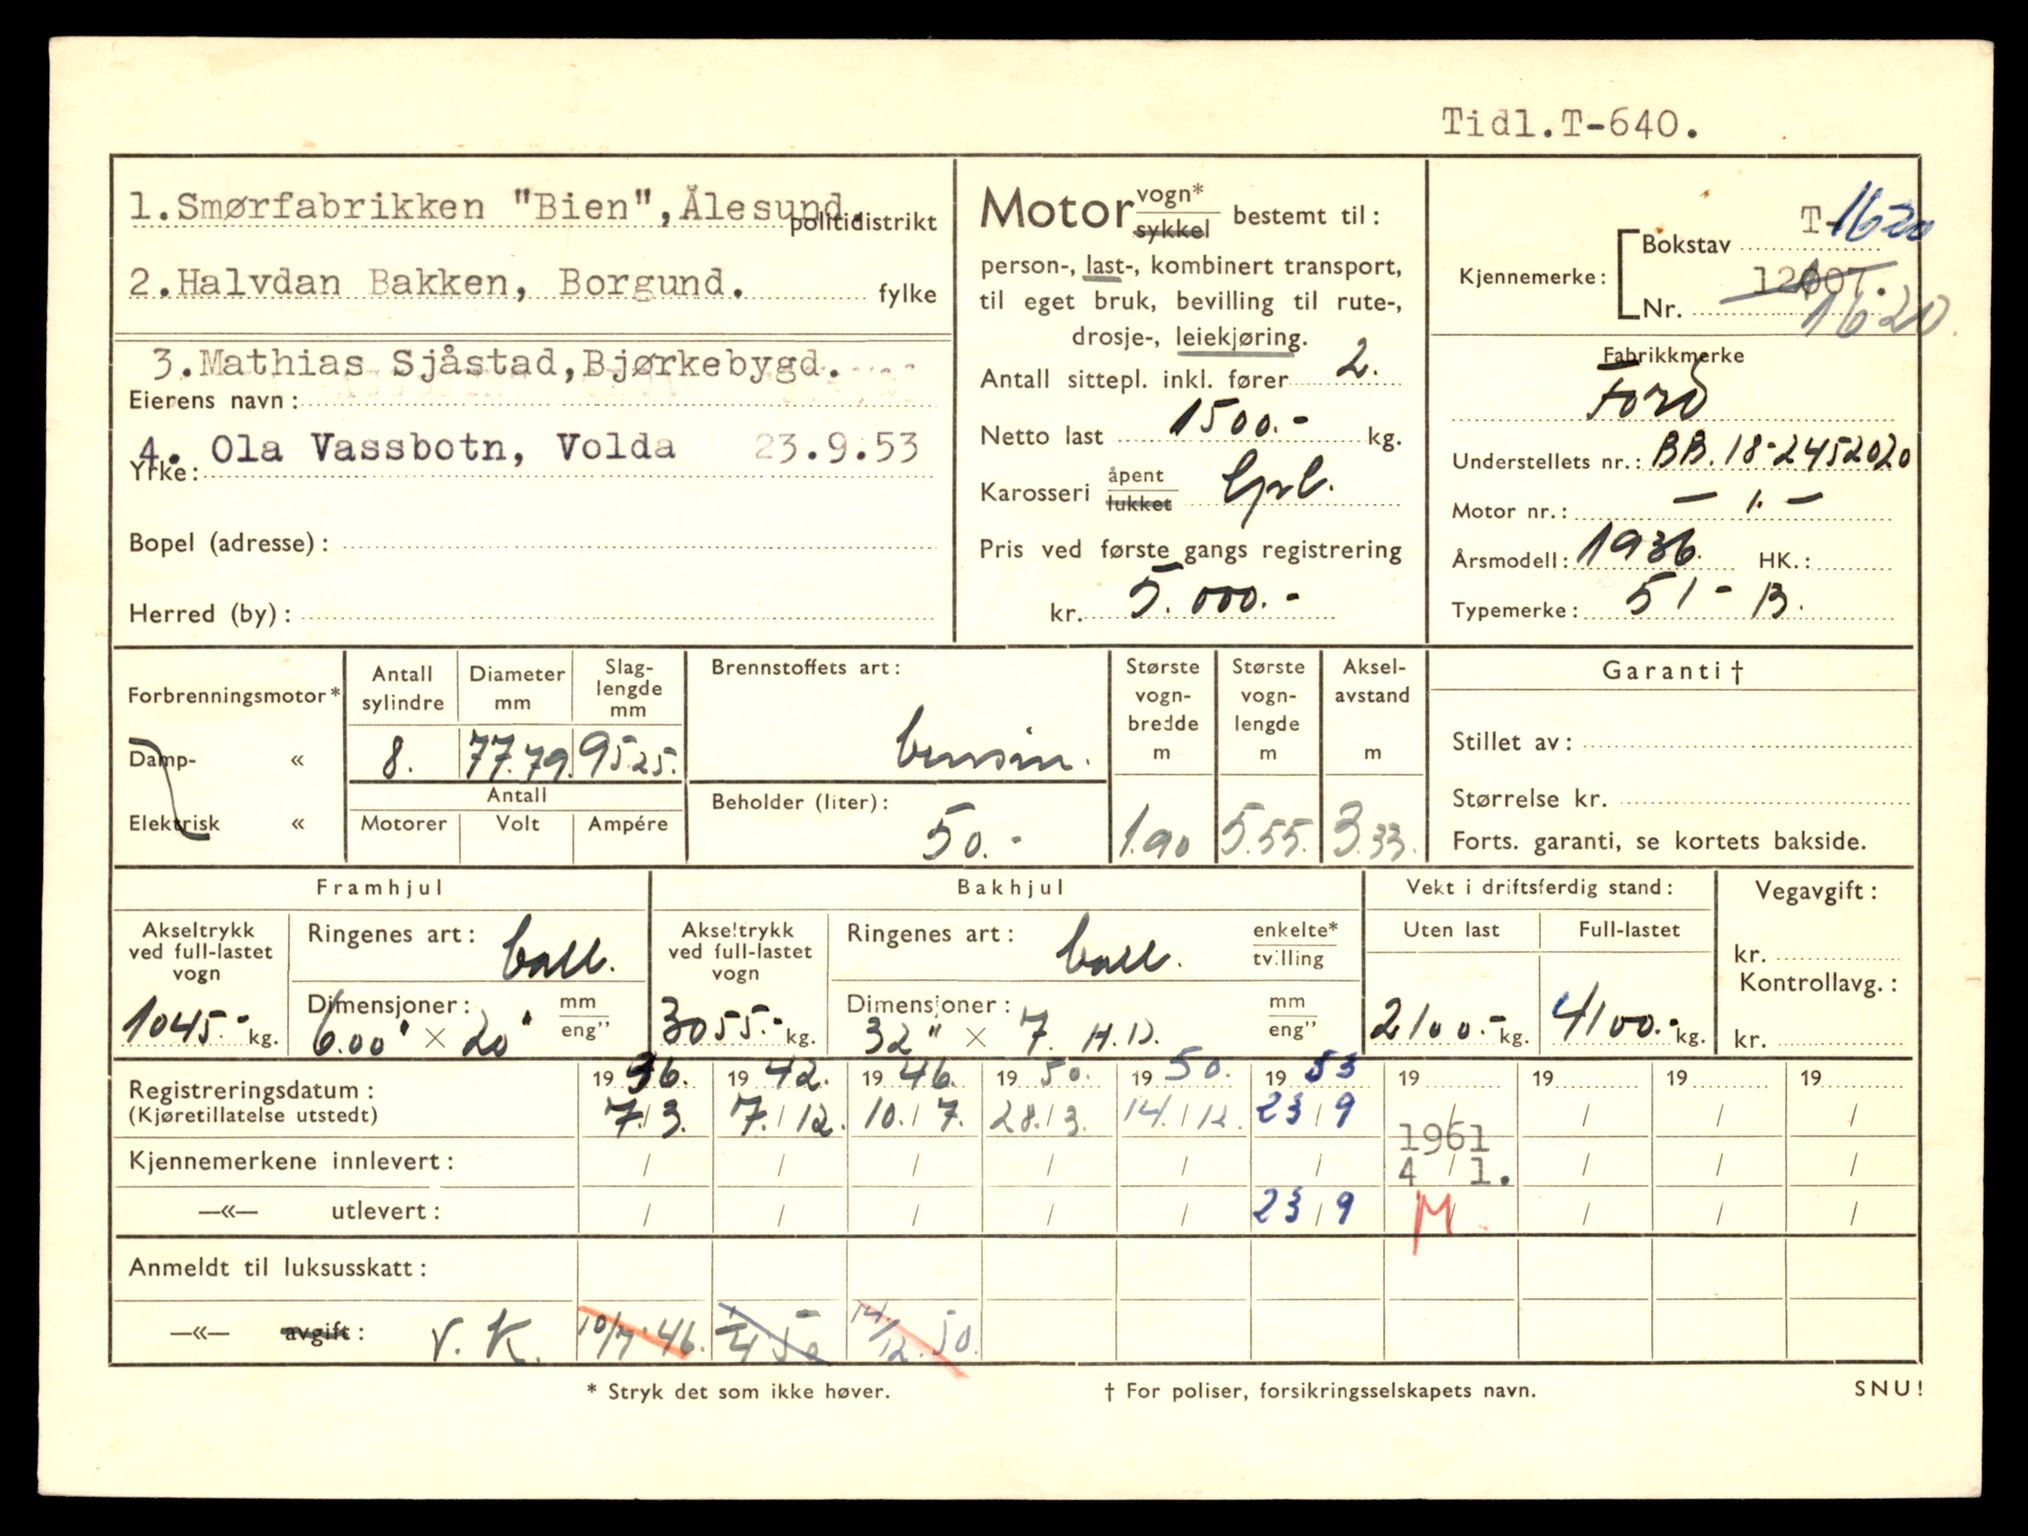 Tidl.T-640.
1.Smørfabrikken "Bien",Ålesund.
politidistrikt
2.Halvdan Bakken, Borgund.
fylke
3.Mathias Sjåstad,Bjørkebygd.
Eierens navn:
4. Ola Vassbotn, Volda 23.9.53
Yrke:
Bopel (adresse):
Herred (by):
Motor vogn* sykkel bestemt til:
person-, last-, kombinert transport,
til eget bruk, bevilling til rute-,
drosje-, leiekjøring.
Antall sittepl. inkl. fører 2.
Netto last 1500.- kg.
Karosseri åpent lukket
Pris ved første gangs registrering
kr. 5.000.-
Kjennemerke: Bokstav T-1620
Nr. 12007. 1620
Fabrikkmerke
Ford
Understellets nr.: BB.18-2452020
Motor nr.: — 1. —
Årsmodell: 1936. HK.:
Typemerke: 51-B.
Forbrenningsmotor*
Damp- «
Elektrisk «
Antall sylindre
8.
Diameter mm
77.79.
Slaglengde mm
95.25.
Antall
Motorer Volt Ampére
Brennstoffets art:
bensin.
Beholder (liter):
50.-
Største vognbredde m
1.90
Største vognlengde m
5.55.
Akselavstand m
3.33.
Garanti†
Stillet av:
Størrelse kr.
Forts. garanti, se kortets bakside.
Framhjul
Akseltrykk ved full-lastet vogn
1045.- kg.
Ringenes art: ball.
Dimensjoner: mm eng"
6.00" × 20"
Bakhjul
Akseltrykk ved full-lastet vogn
3055.- kg.
Ringenes art: ball. enkelte* tvilling
Dimensjoner: mm eng"
32" × 7. H.D.
Vekt i driftsferdig stand:
Uten last Full-lastet
2100.- kg. 4100.- kg.
Vegavgift:
kr.
Kontrollavg.:
kr.
Registreringsdatum: 1936. 1942. 1946. 1950. 1950. 1953 19 19 19 19
(Kjøretillatelse utstedt) 7./3. 7./12. 10./7. 28./3. 14./12. 23/9 / / / /
1961
Kjennemerkene innlevert: / / / / / / 4 / 1. / / /
—«— utlevert: / / / / / 23/9 M / / /
Anmeldt til luksusskatt:
—«— avgift: V. K. 10/7.46. 1/4 50 14/12.50.
* Stryk det som ikke høver.
† For poliser, forsikringsselskapets navn.
SNU!